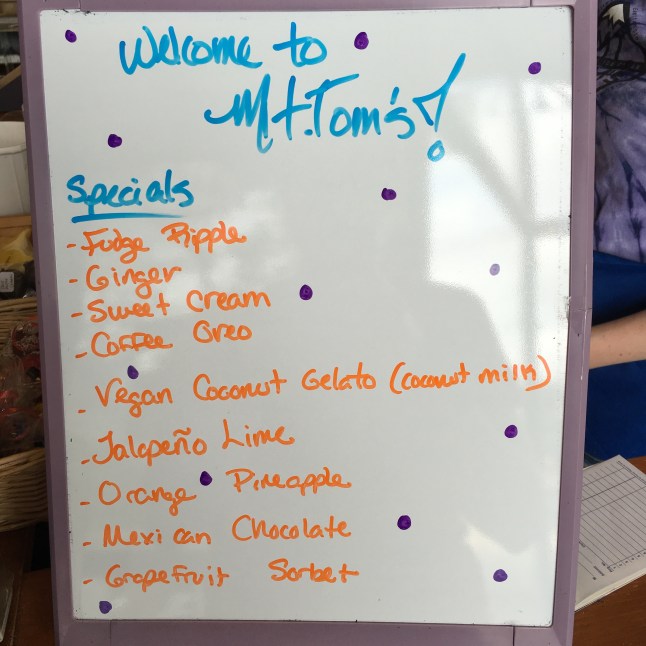 Welcome to
Mt.Tom's!
Specials
- Fudge Ripple
- Ginger
- Sweet Cream
- Coffee Oreo
- Vegan Coconut Gelato (coconut milk)
- Jalapeño Lime
- Orange Pineapple
- Mexican Chocolate
- Grapefruit Sorbet